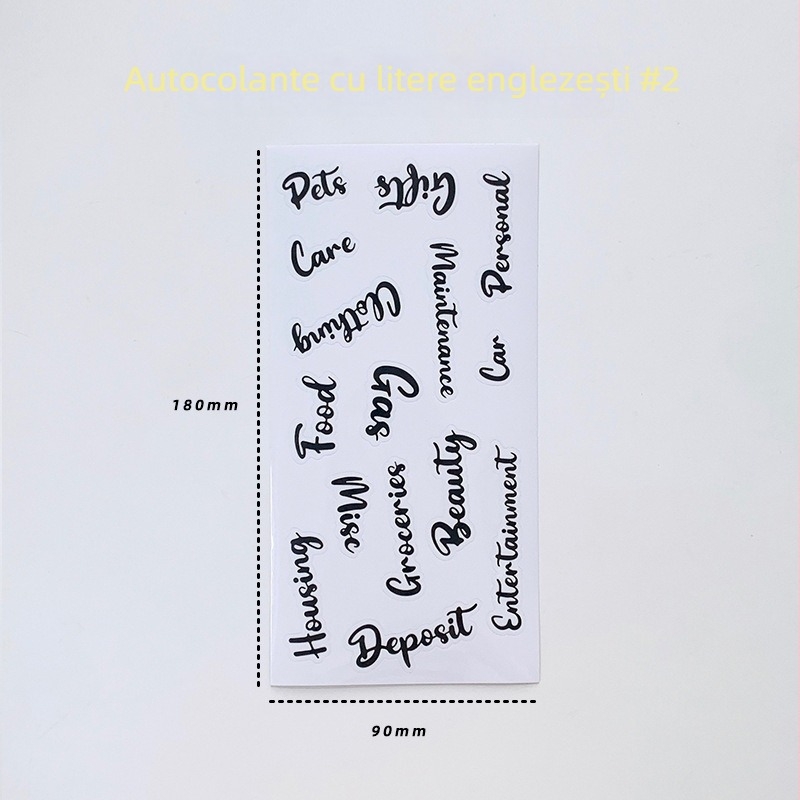 Autocolante cu litere englezești #2
Pets
Gifts
Personal
Care
Maintenance
Clothing
Car
Gas
Food
180mm
Beauty
Misc
Groceries
Entertainment
Housing
Deposit
90mm